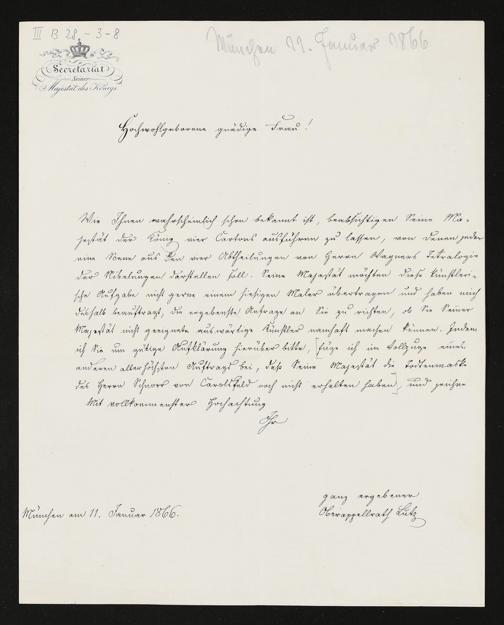 III B 28 - 3 - 8
München 11. Januar 1866
Secretariat
Seiner
Majestät des Königs
Hochwohlgeborene gnädige Frau!
Wie Ihnen wahrscheinlich schon bekannt ist, beabsichtigen Seine Ma-
jestät der König vier Cartons ausführen zu lassen, von denen jeder
eine Scene aus den vier Abtheilungen von Herrn Wagners Tetralogie
der Nibelungen darstellen soll. Seine Majestät möchten diese künstleri-
sche Aufgabe nicht gerne einem hiesigen Maler übertragen und haben mich
deshalb beauftragt, die ergebenste Anfrage an Sie zu richten, ob Sie Seiner
Majestät nicht geeignete auswärtige Künstler namhaft machen können. Indem
ich Sie um gütige Aufklärung hierüber bitte, füge ich im Vollzuge eines
anderen allerhöchsten Auftrags bei, daß Seine Majestät die Todtenmaske
des Herrn Schnorr von Carolsfeld noch nicht erhalten haben, und zeichne
Mit vollkommenster Hochachtung
Ihr
ganz ergebener
Oberappellrath Lutz
München am 11. Januar 1866.